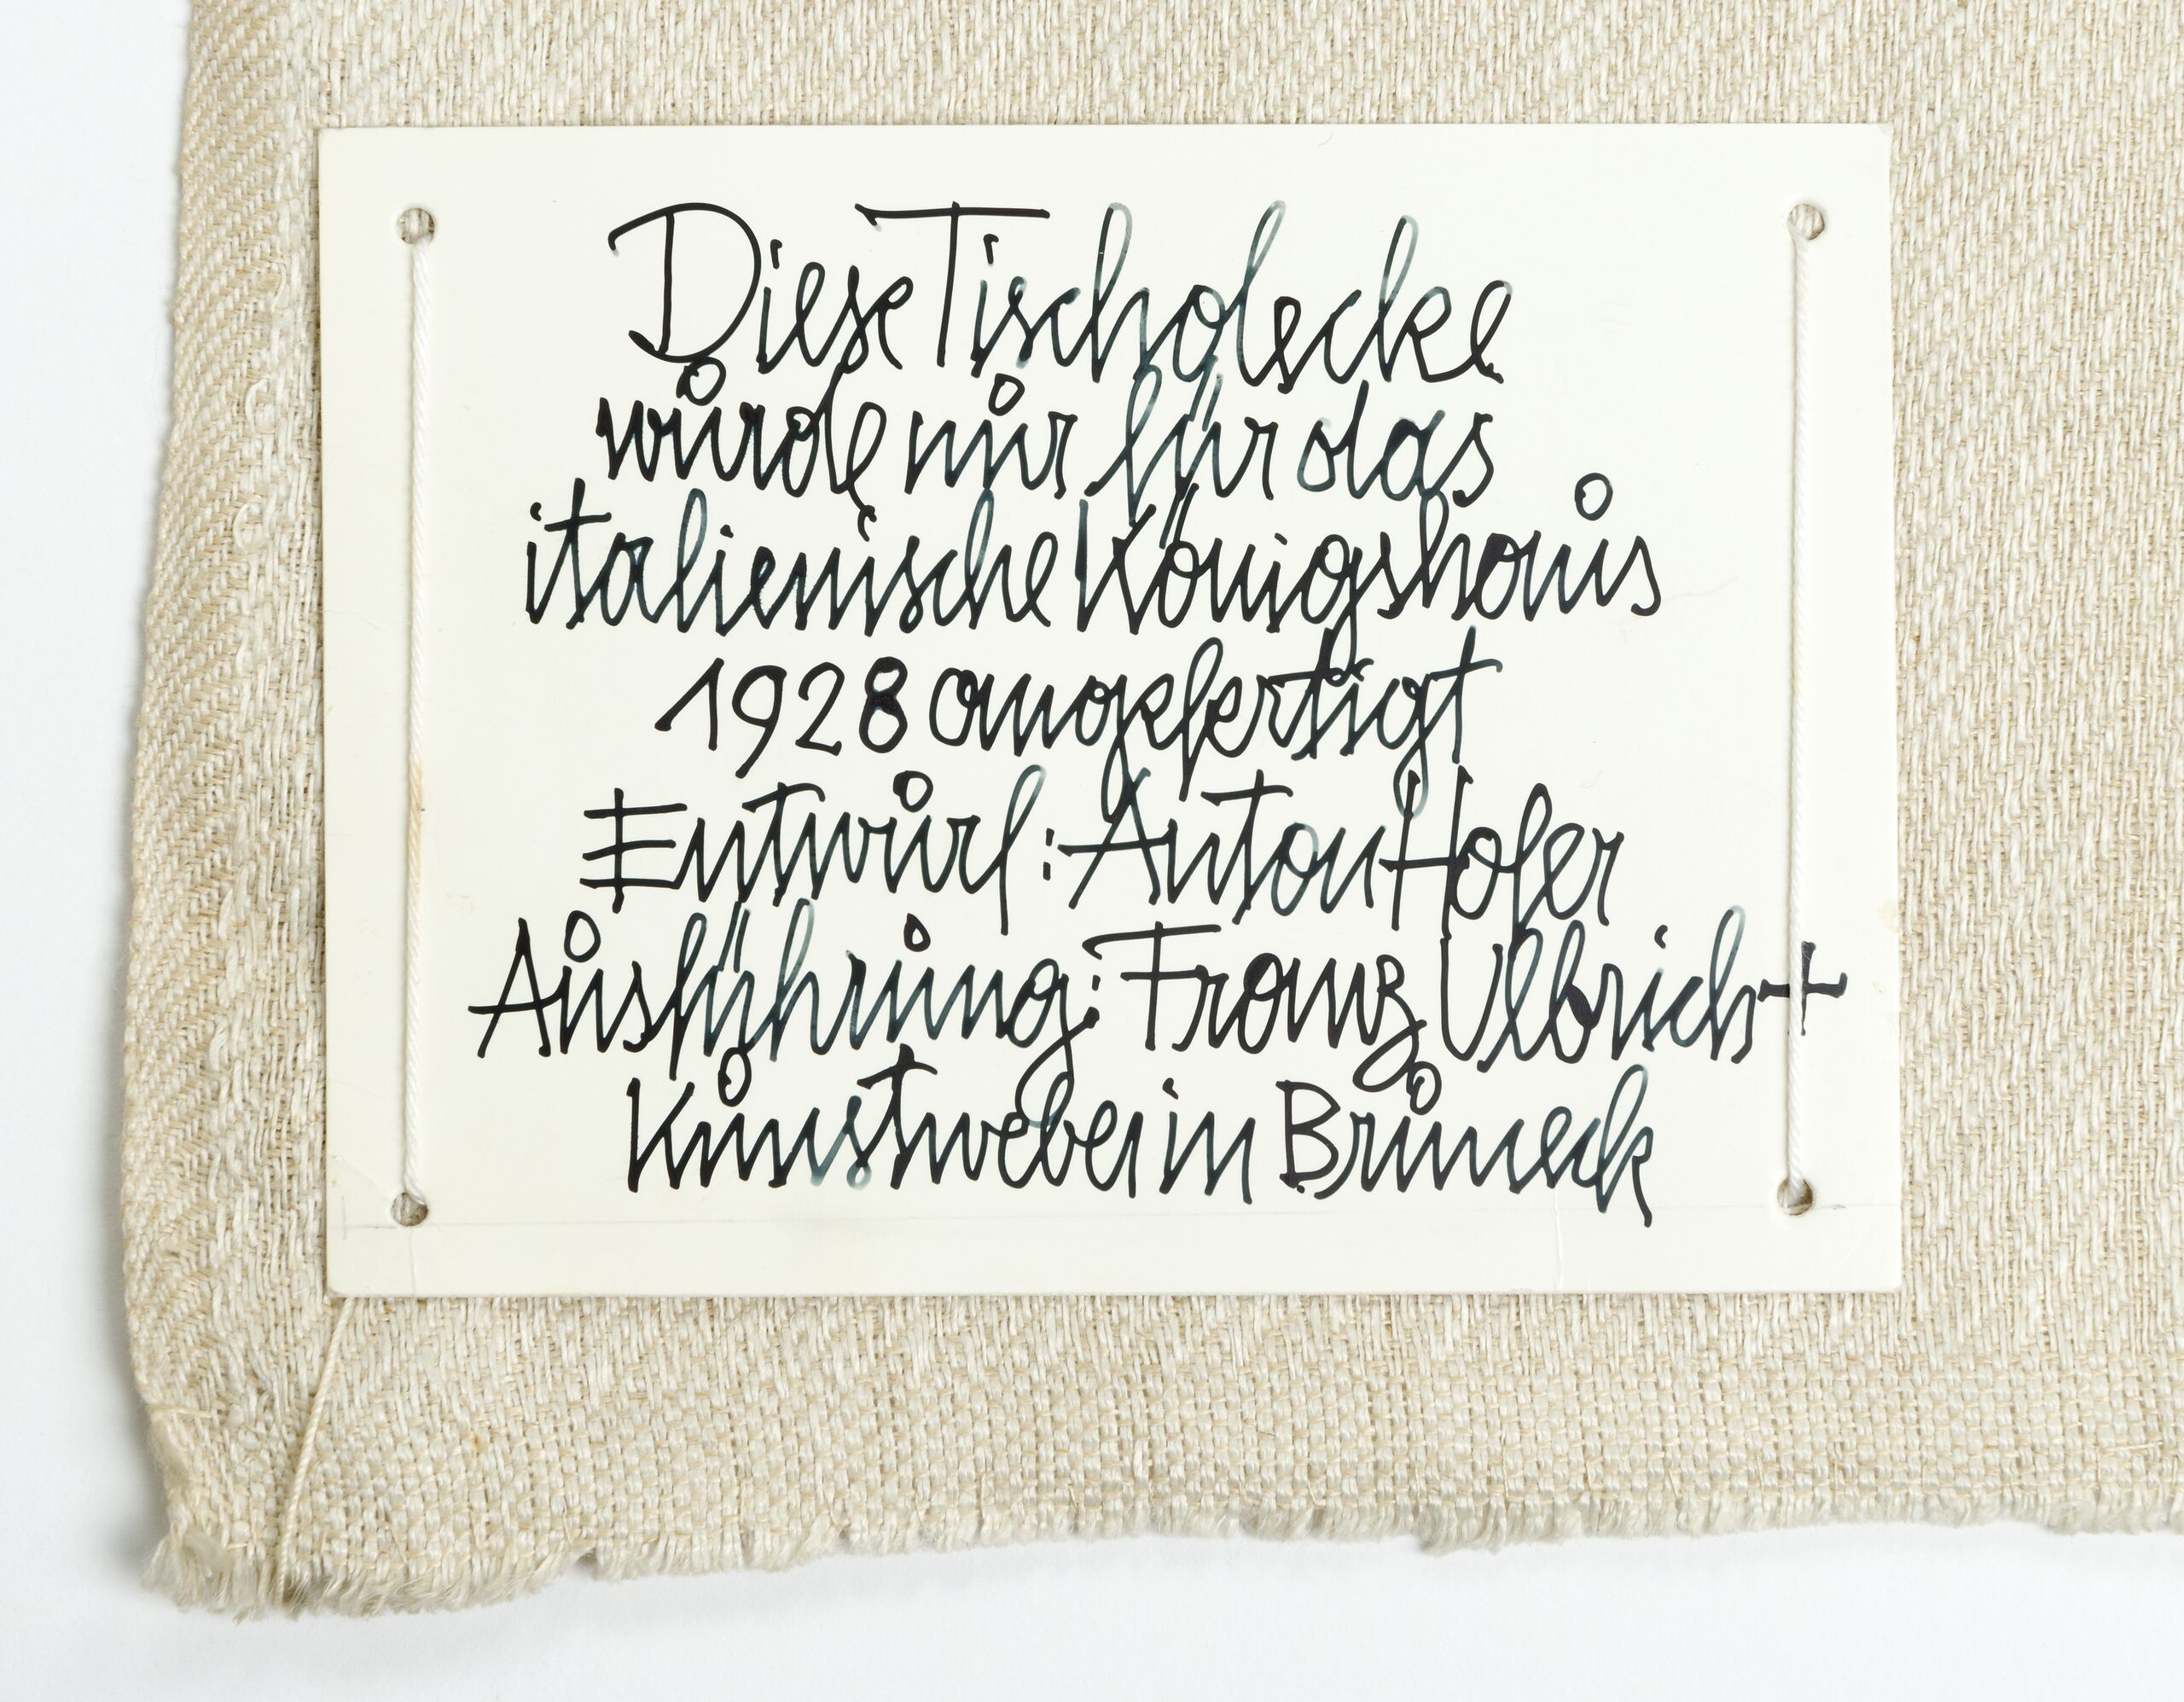 Diese Tischdecke
wurde nur für das
italienische Königshaus
1928 angefertigt
Entwurf: Anton Hofer
Ausführung: Franz Ulbrich +
Kunstweber in Bruneck